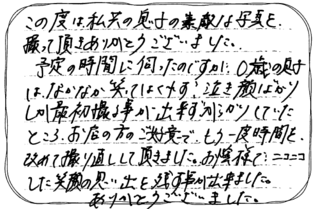 この度は、私共の息子の素敵な写真を、
撮って頂きありがとうございました。
予定の時間に伺ったのですが、0歳の息子
はなかなか笑ってはくれず、泣き顔ばかり
しか最初撮る事が出来ずがっかりしていた
ところ、お店の方のご好意で、もう一度時間を、
改めて撮り直しして頂きました。お陰様で、ニコニコ
した笑顔の思い出を残す事が出来ました。
ありがとうございました。